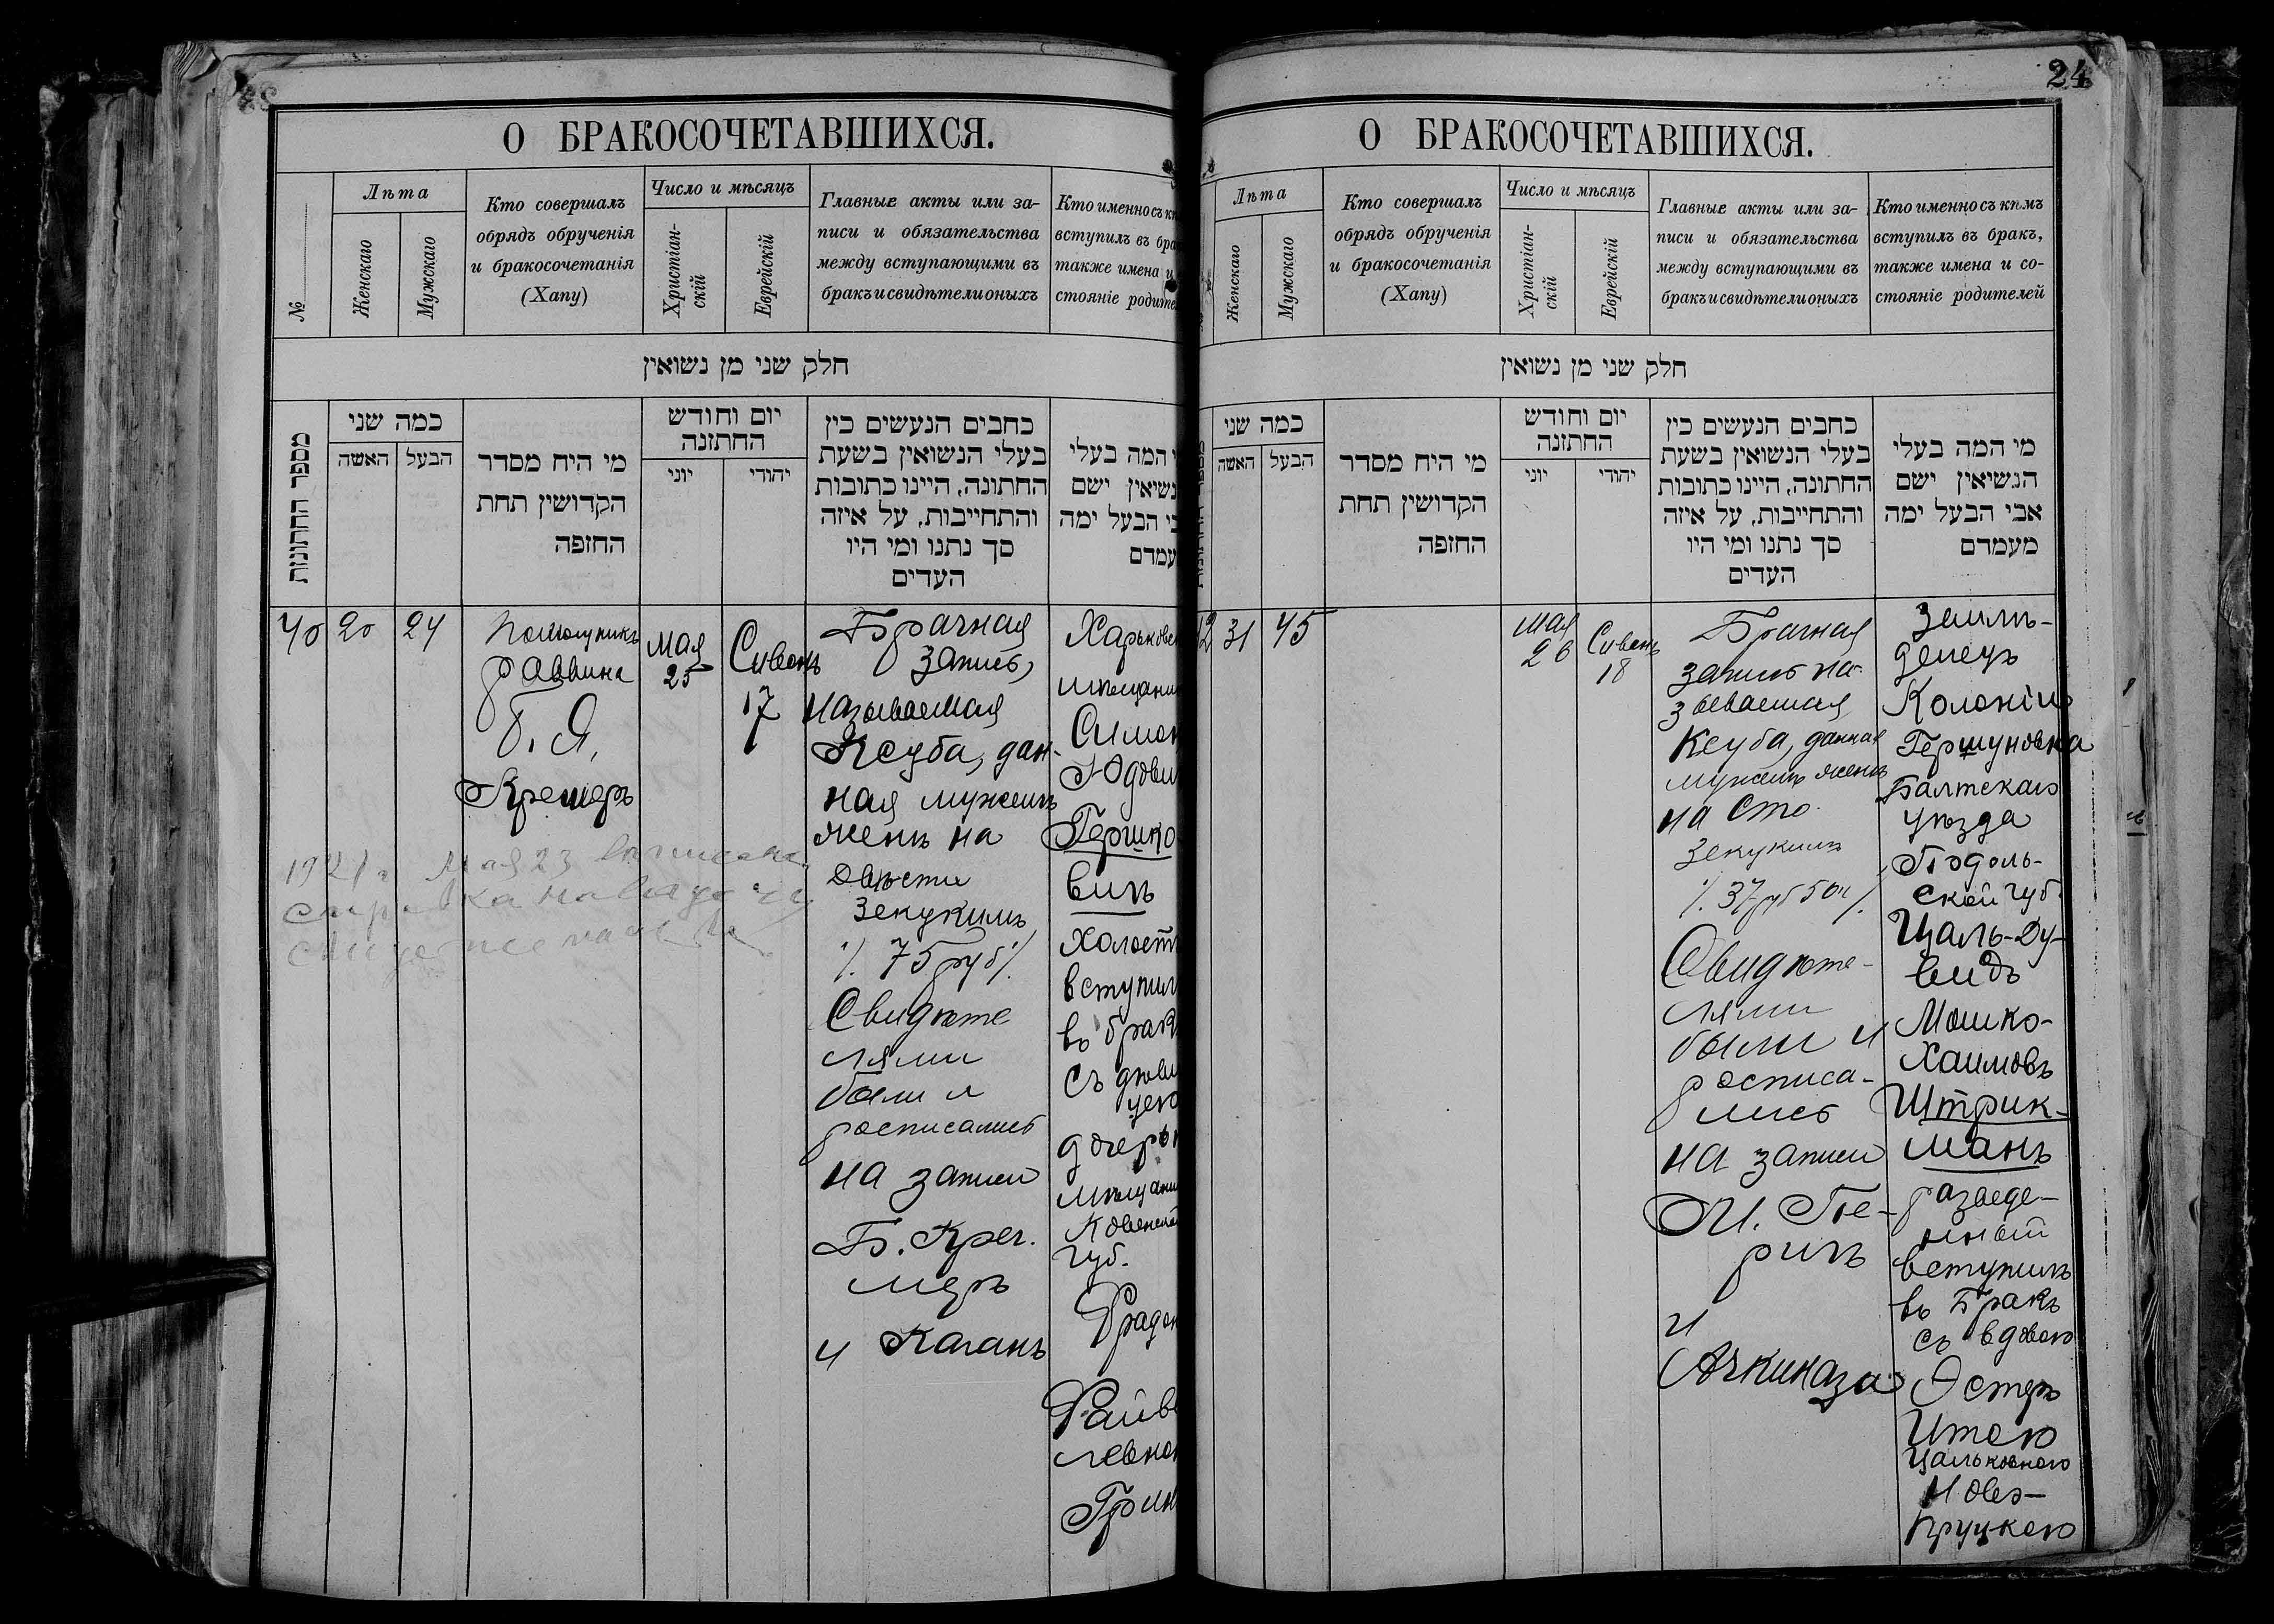 24
О БРАКОСОЧЕТАВШИХСЯ.
№
Лѣта
Женскаго
Мужскаго
Кто совершалъ
обрядъ обрученія
и бракосочетанія
(Хапу)
Число и мѣсяцъ
Христіан-
скій
Еврейскій
Главные акты или за-
писи и обязательства
между вступающими въ
бракъ и свидѣтели оныхъ
Кто именно съ
вступилъ въ
также имена
стояніе
חלק שני מן נשואין
מספר החתונות
כמה שני
האשה
הבעל
מי היח מסדר
הקדושין תחת
החופה
יום וחודש
החתונה
יוני
יהודי
כחבים הנעשים כין
בעלי הנשואין בשעת
החתונה, היינו כתובות
והתחייבות, על איזה
סך נתנו ומי היו
העדים
המה בעלי
נשיאין ישם
הבעל ימה
40
20
24
Помощникъ
раввина
Б. Я.
Кремеръ
Мая
25
Сивонъ
17
Брачная
запись,
называемая
Ксуба, дан-
ная мужемъ
женѣ на
двѣсти
зекукимъ
/. 75 руб /.
Свидѣте
лями
были и
росписались
на записи
Б. Кре.
меръ
и Каганъ
Гершко
вичъ
въ
съ
губ.
1921 г. Мая 23
О БРАКОСОЧЕТАВШИХСЯ.
Лѣта
Женскаго
Мужскаго
Кто совершалъ
обрядъ обрученія
и бракосочетанія
(Хапу)
Число и мѣсяцъ
Христіан-
скій
Еврейскій
Главные акты или за-
писи и обязательства
между вступающими въ
бракъ и свидѣтели оныхъ
Кто именно съ кѣмъ
вступилъ въ бракъ,
также имена и со-
стояніе родителей
חלק שני מן נשואין
כמה שני
האשה
הבעל
מי היח מסדר
הקדושין תחת
החופה
יום וחודש
החתונה
יוני
יהודי
כחבים הנעשים כין
בעלי הנשואין בשעת
החתונה, היינו כתובות
והתחייבות, על איזה
סך נתנו ומי היו
העדים
מי המה בעלי
הנשיאין ישם
אבי הבעל ימה
מעמדם
31
45
Мая
26
Сивонъ
18
Брачная
запись на-
зываемая
Ксуба, данная
мужемъ женѣ
на сто
зекукимъ
/. 37 руб 50 к /.
Свидѣте-
лями
были и
росписа-
лись
на записи
М. Пе-
ричъ
и
Ачкинази
Землѣ-
делецъ
Колоніи
Гершуновка
Балтскаго
уѣзда
Подоль-
ской губ.
Цаль-Ду-
видъ
Мошко-
Хаимовъ
Штрик-
манъ
разведе-
нный
вступилъ
въ бракъ
съ вдовою
Эстеръ
Итою
Цальковною
Ново-
Пруцкою